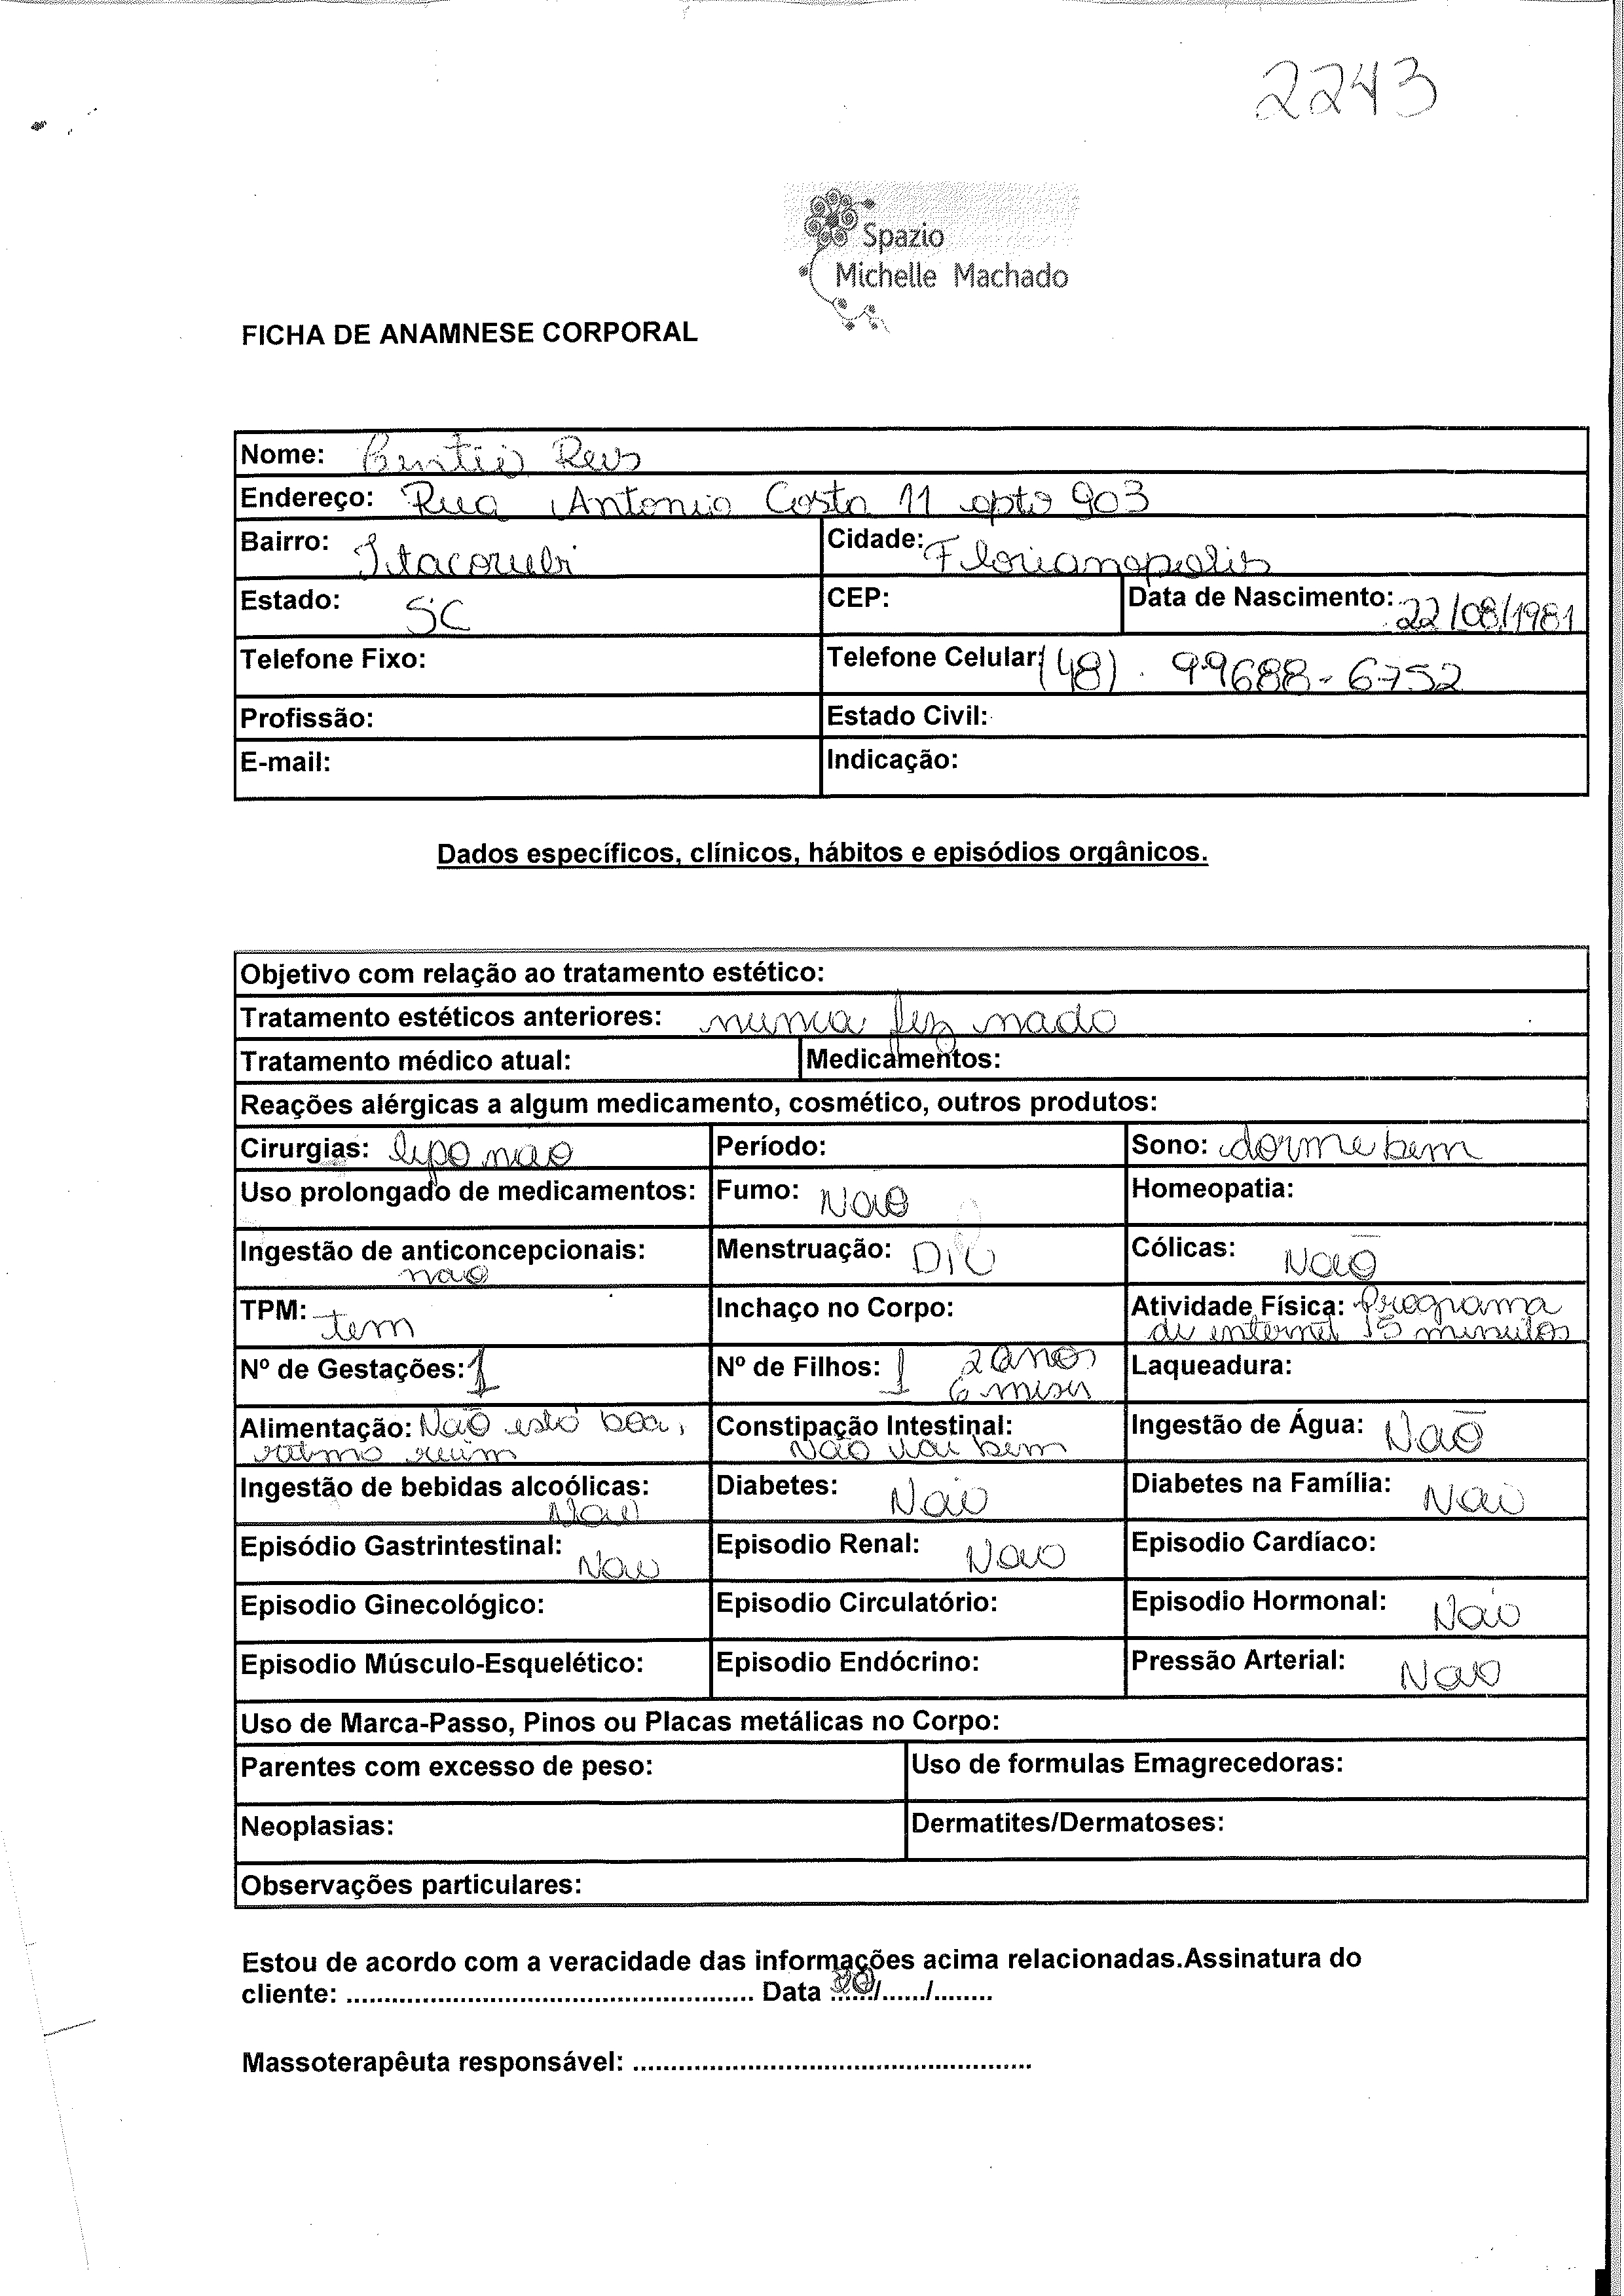 2243
Spazio
Michelle Machado
FICHA DE ANAMNESE CORPORAL
Nome: Reus
Endereço: Rua Antonio Costa 11 apto 903
Bairro: Itacorubi Cidade: Florianopolis
Estado: SC CEP: Data de Nascimento: 22/08/1981
Telefone Fixo: Telefone Celular: (48) 99688-6752
Profissão: Estado Civil:
E-mail: Indicação:
Dados específicos, clínicos, hábitos e episódios orgânicos.
Objetivo com relação ao tratamento estético:
Tratamento estéticos anteriores: nunca fez nada
Tratamento médico atual: Medicamentos:
Reações alérgicas a algum medicamento, cosmético, outros produtos:
Cirurgias: lipo nao Período: Sono: dorme bem
Uso prolongado de medicamentos: Fumo: Não Homeopatia:
Ingestão de anticoncepcionais: Menstruação: DIU Cólicas: Não
nao
TPM: tem Inchaço no Corpo: Atividade Física: Programa
de internet 15 minutos
Nº de Gestações: 1 Nº de Filhos: 1 2 anos Laqueadura:
6 meses
Alimentação: Não está boa, Constipação Intestinal: Ingestão de Água: Não
ritmo ruim Não vai bem
Ingestão de bebidas alcoólicas: Diabetes: Não Diabetes na Família: Não
Não
Episódio Gastrintestinal: Não Episodio Renal: Não Episodio Cardíaco:
Episodio Ginecológico: Episodio Circulatório: Episodio Hormonal: Não
Episodio Músculo-Esquelético: Episodio Endócrino: Pressão Arterial: Não
Uso de Marca-Passo, Pinos ou Placas metálicas no Corpo:
Parentes com excesso de peso: Uso de formulas Emagrecedoras:
Neoplasias: Dermatites/Dermatoses:
Observações particulares:
Estou de acordo com a veracidade das informações acima relacionadas.Assinatura do
cliente: ..................................................... Data ....../....../........
Massoterapêuta responsável: ....................................................